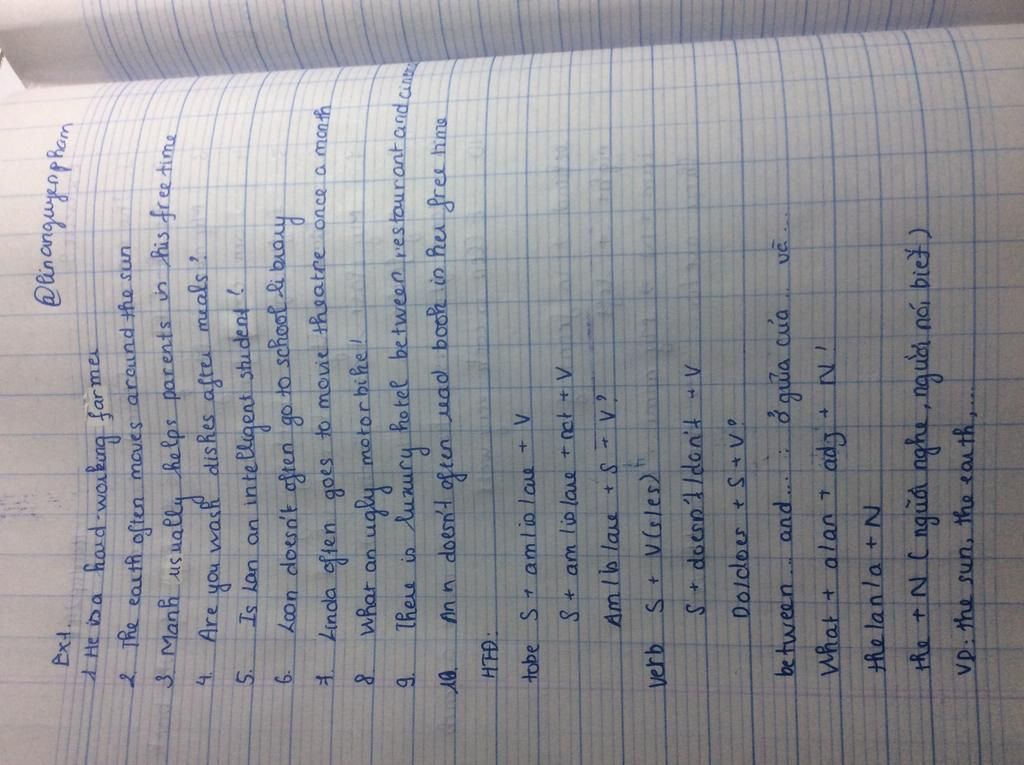 @linanguyenpham
Ex1.
1 He is a hard-working farmer
2. The earth often moves around the sun
3 Manh usually helps parents in his free time
4. Are you wash dishes after meals?
5. Is Lan an intelligent student?
6. Loan doesn't often go to school library
7. Linda often goes to movie theatre once a month
8 What an ugly motorbike!
9. There is luxury hotel between restaurant and
10. Ann doesn't often read book in her free time
HTĐ:
tobe S + am/is/are + V
S + am/is/are + not + V
Am/is/are + S + V?
Verb S + V(s/es)
S + doesn't/don't + V
Do/does + S + V?
between ... and ... : ở giữa của ... và ...
What + a/an + adj + N!
the/an/a + N
the + N ( người nghe, người nói biết)
VD: the sun, the earth, ....